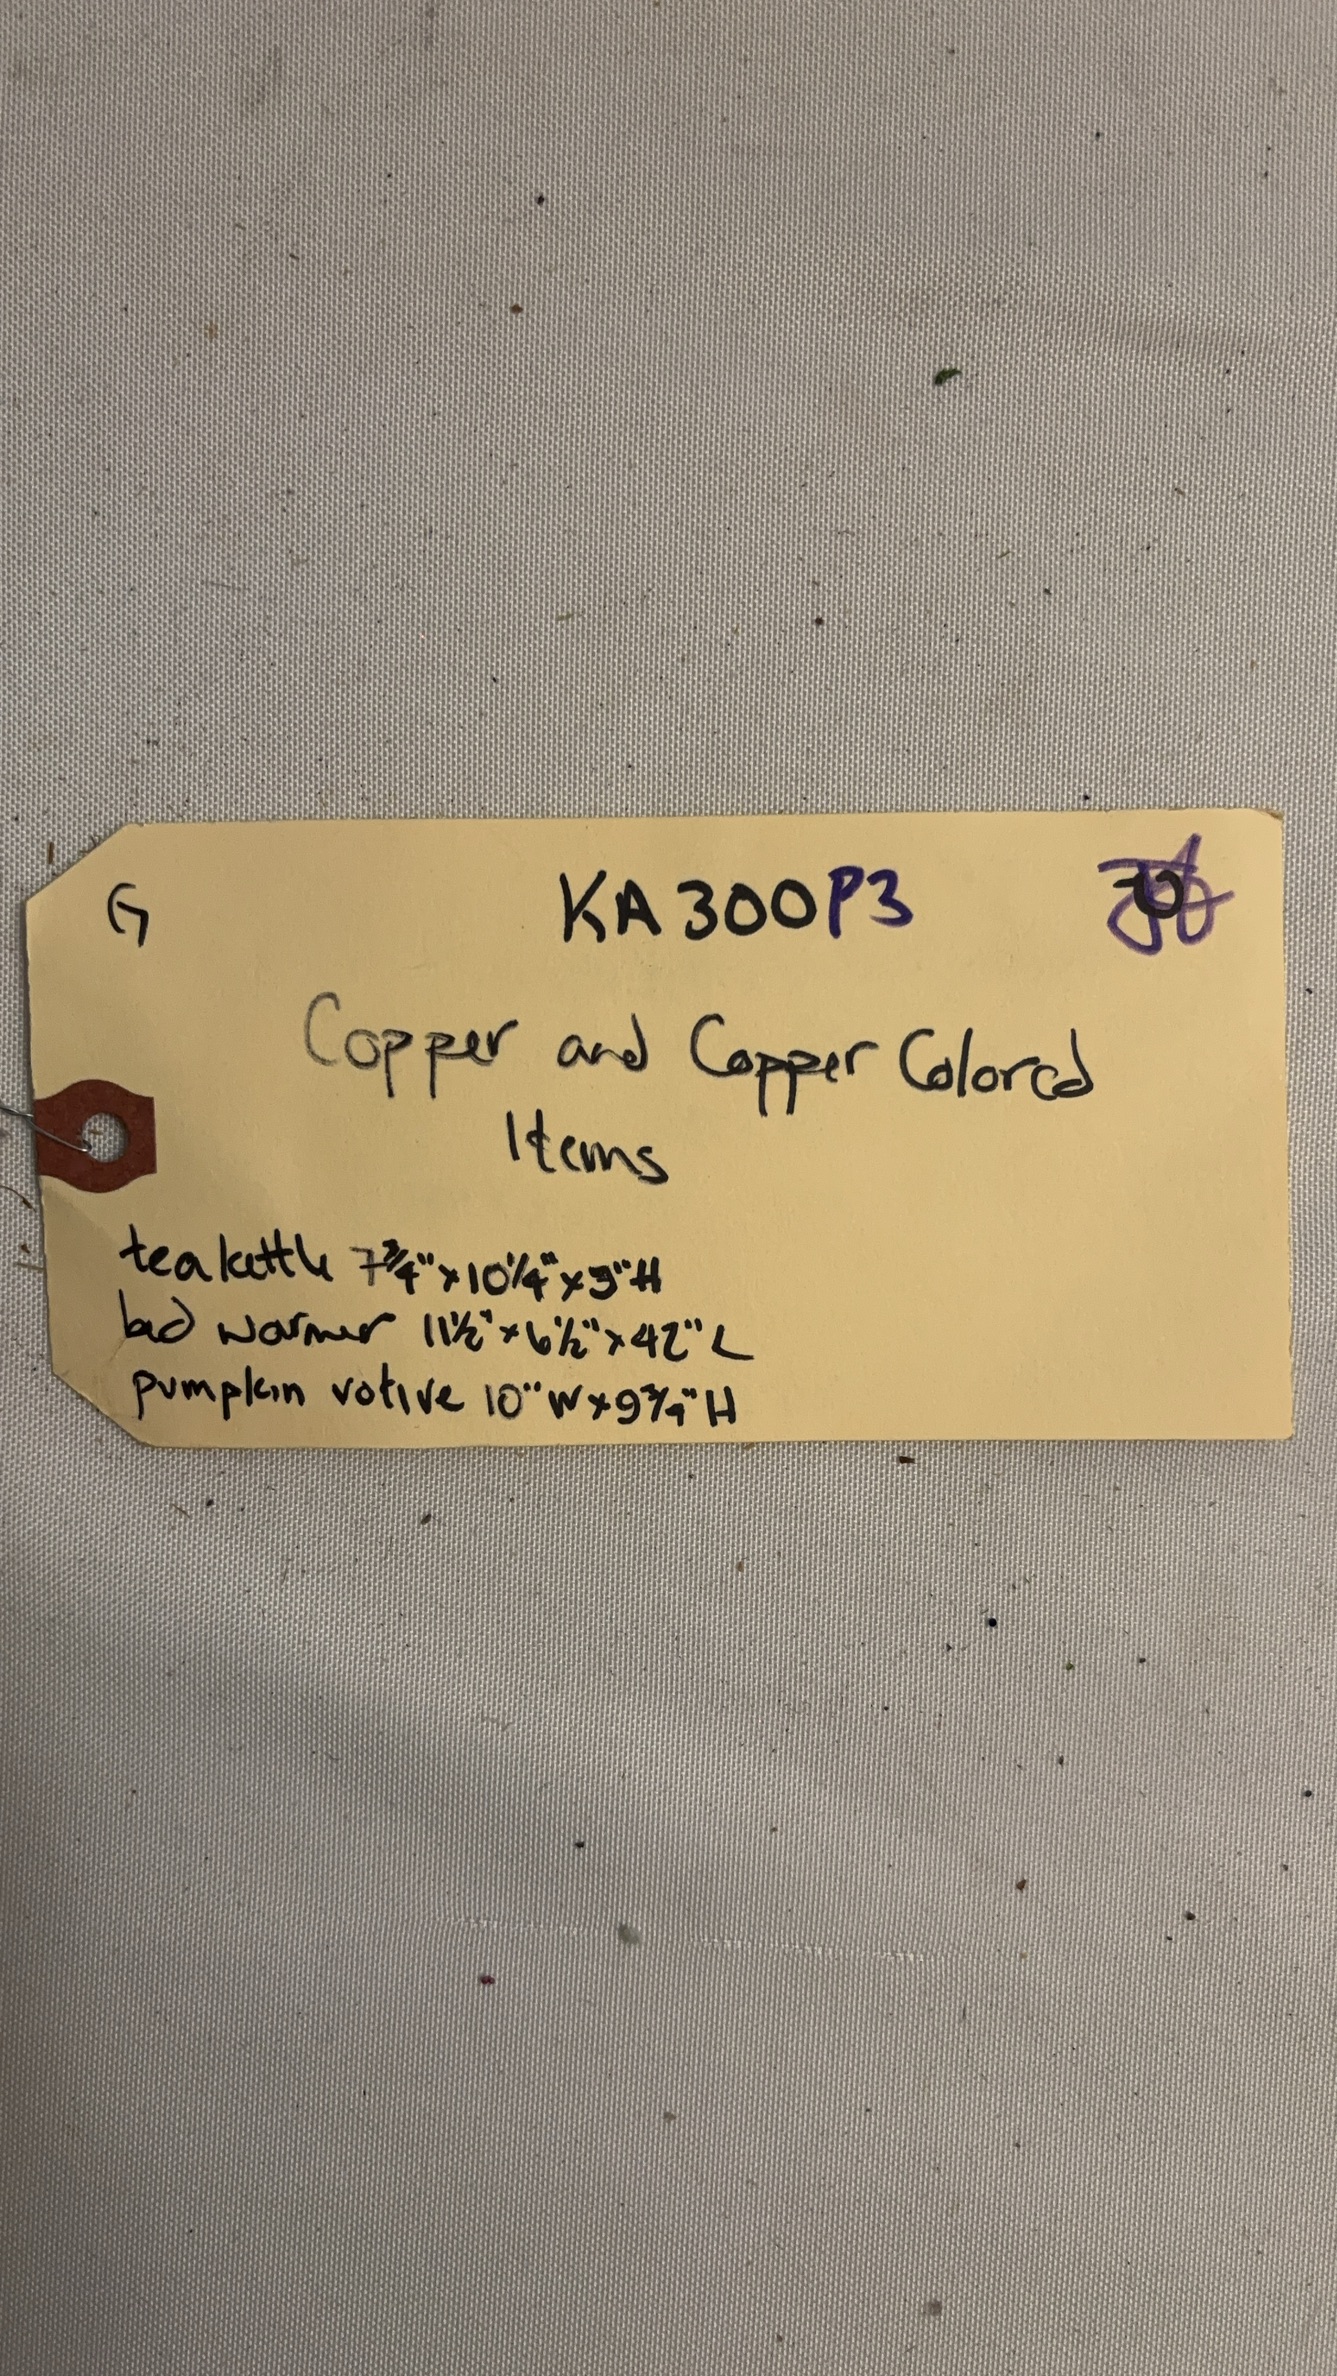 G KA300P3
Copper and Copper Colored
Items
tea kettle 7¾" x 10¼" x 9" H
bed warmer 11½" x 6½" x 42" L
pumpkin votive 10" W x 9¾" H